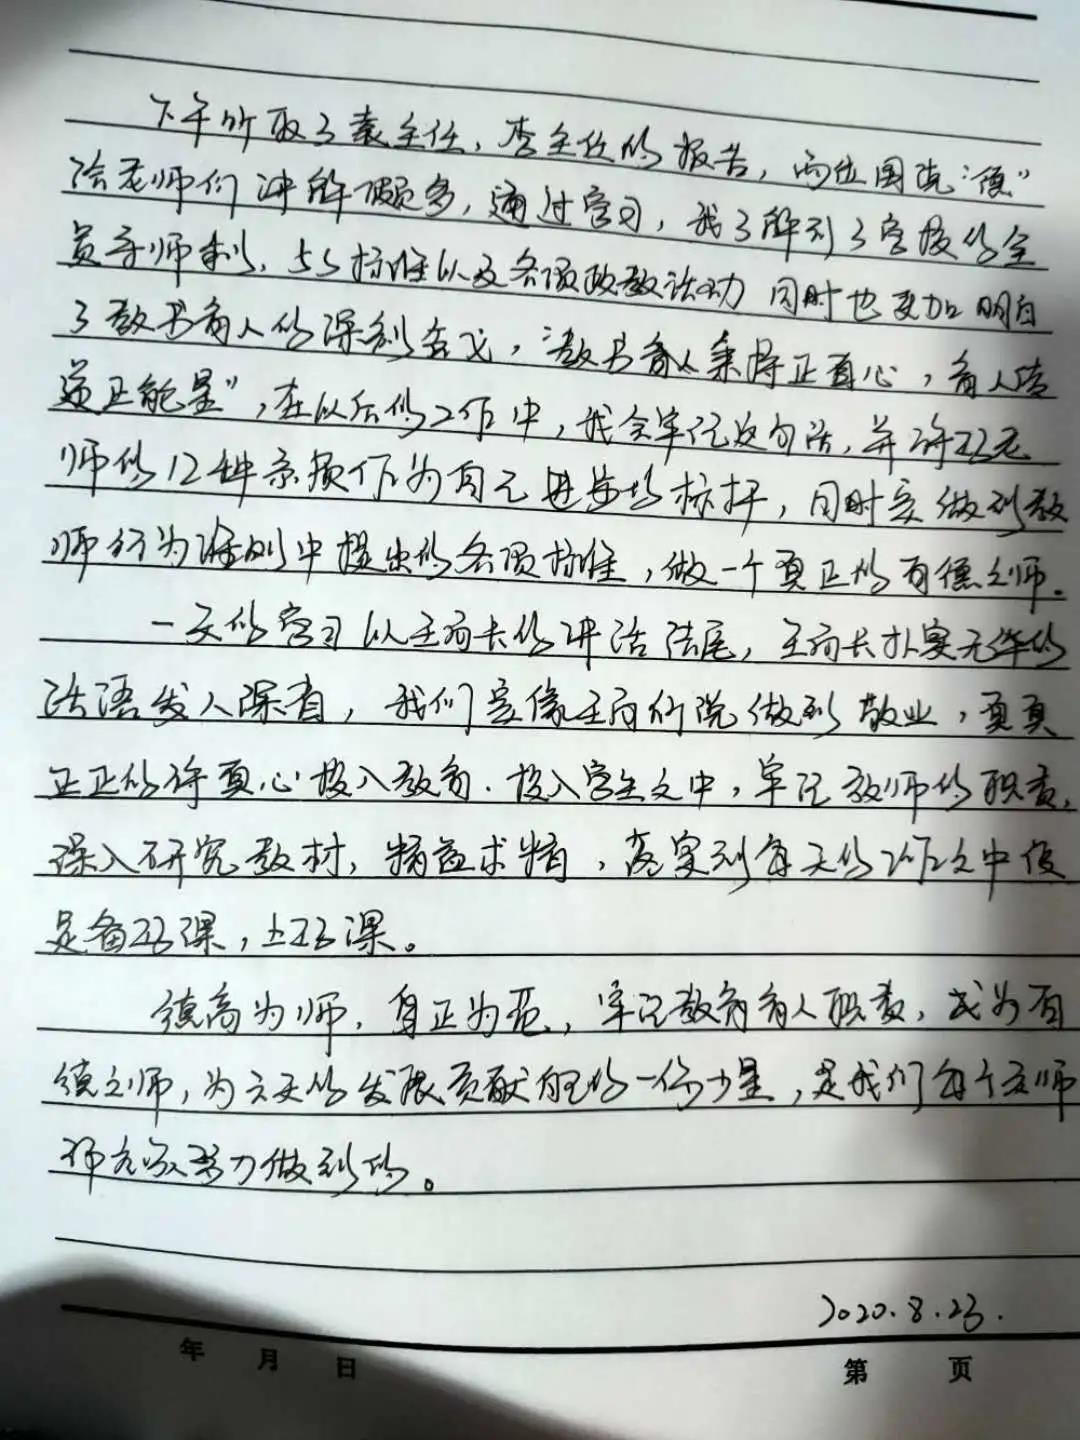 下午听取了袁主任、李主任的报告，两位围绕“德”
给老师们讲解颇多，通过学习，我了解到了学校的全
员导师制、5S标准以及各项政教活动 同时也更加明白
了教书育人的深刻含义，“教书育人秉持正直心，育人传
递正能量”，在以后的工作中，我会牢记这句话，并将好老
师的12种素质作为自己进步的标杆，同时要做到教
师行为准则中提出的各项标准，做一个真正的有德之师。
一天的学习以王府长的讲话结尾，王府长朴实无华的
话语发人深省，我们要像王府所说做到敬业，真真
正正的将真心投入教育、投入学生之中，牢记教师的职责，
深入研究教材，精益求精，落实到每天的工作之中便
是备好课，上好课。
德高为师，身正为范，牢记教育育人职责，成为有
德之师，为六天的发展贡献自己的一份力量，是我们每个老师
都应该努力做到的。
2020.8.23.
年 月 日 第 页